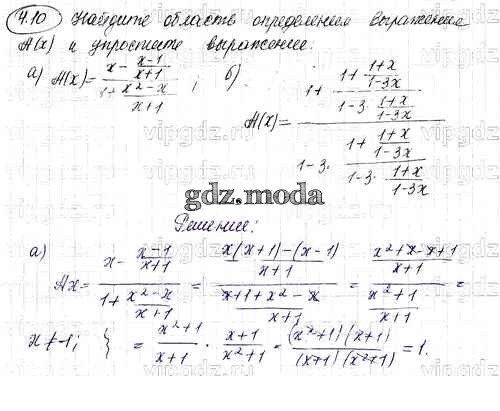 4.10 Найдите область определения выражения
A(x) и упростите выражение:
а) A(x) = (x - (x-1)/(x+1)) / (1 + (x²-x)/(x+1)) ; б) A(x) = (1 + (1 + (1+x)/(1-3x)) / (1-3·(1+x)/(1-3x))) / (1-3·(1 + (1+x)/(1-3x)) / (1-3·(1+x)/(1-3x)))
gdz.moda
Решение:
а) Ax = (x - (x-1)/(x+1)) / (1 + (x²-x)/(x+1)) = ((x(x+1)-(x-1))/(x+1)) / ((x+1+x²-x)/(x+1)) = ((x²+x-x+1)/(x+1)) / ((x²+1)/(x+1)) =
x≠-1; } = (x²+1)/(x+1) · (x+1)/(x²+1) = ((x²+1)(x+1))/((x+1)(x²+1)) = 1.